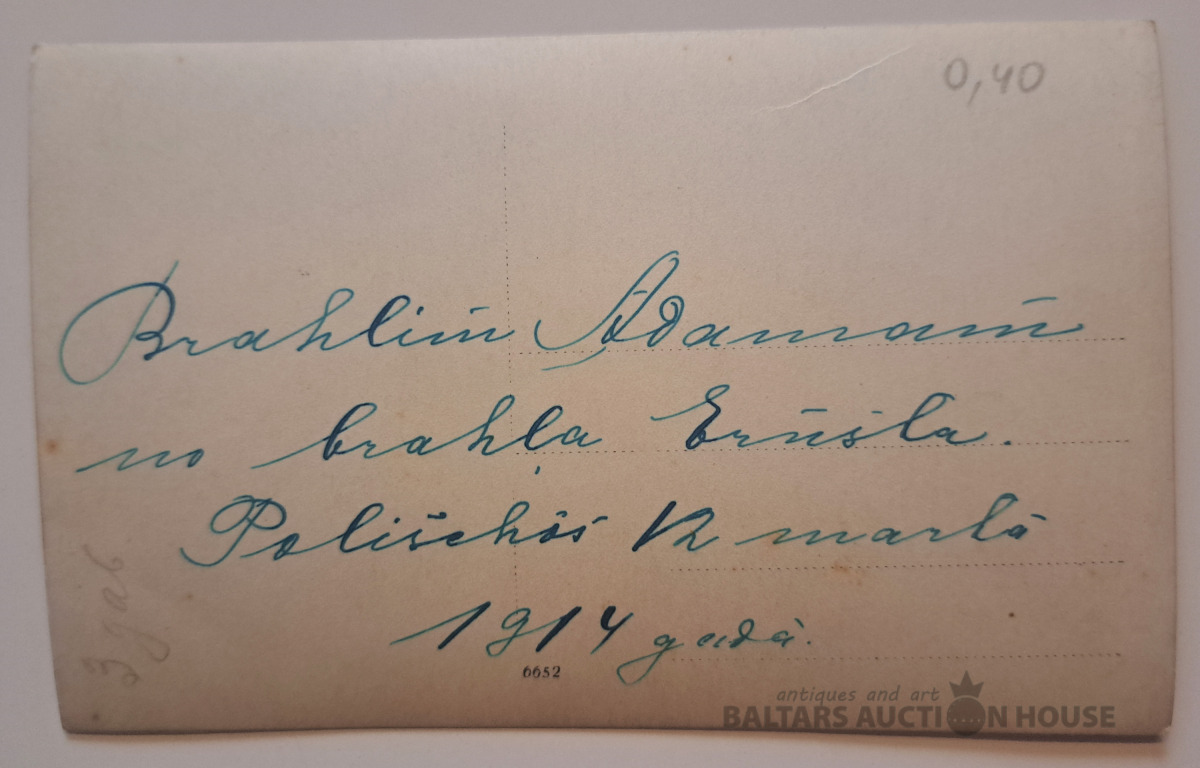 0,40
Brahlim Adamam
no brahļa Ernsta.
Polischôs 12 martâ
1914 gadâ.
6652
3 gab
antiques and art
BALTARS AUCTION HOUSE